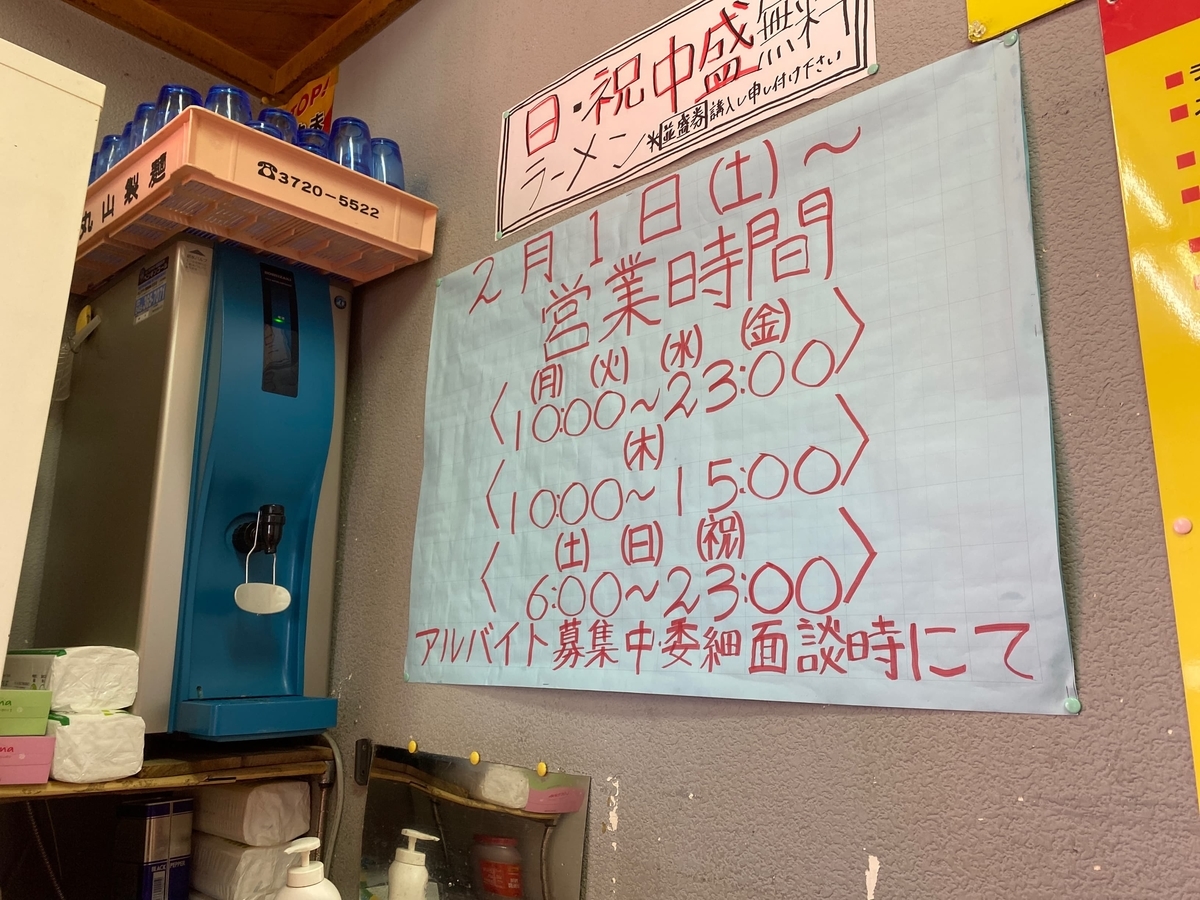 日・祝中盛無料
ラーメン※並盛券購入し申し付け下さい
2月1日(土)〜
営業時間
(月)(火)(水)(金)
〈10:00〜23:00〉
(木)
〈10:00〜15:00〉
(土)(日)(祝)
〈6:00〜23:00〉
アルバイト募集中・委細面談時にて
丸山製麺
☎3720-5522
STOP!
BLACK PEPPER